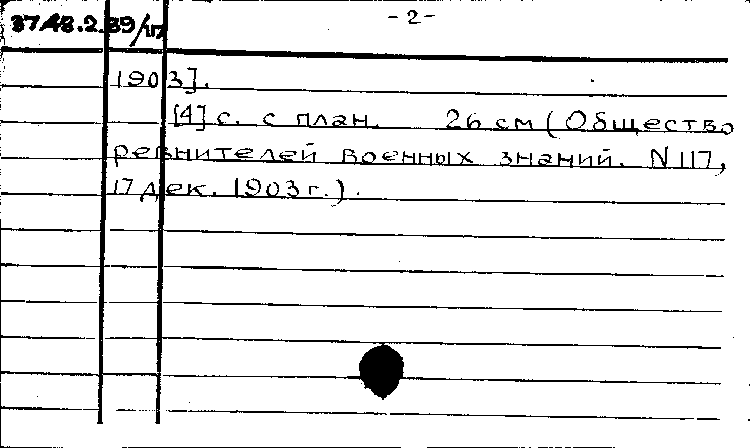 37.48.2.39/117
- 2 -
1903].
[4] с. с план. 26 см (Общество
ревнителей военных знаний. N 117,
17 дек. 1903 г.).